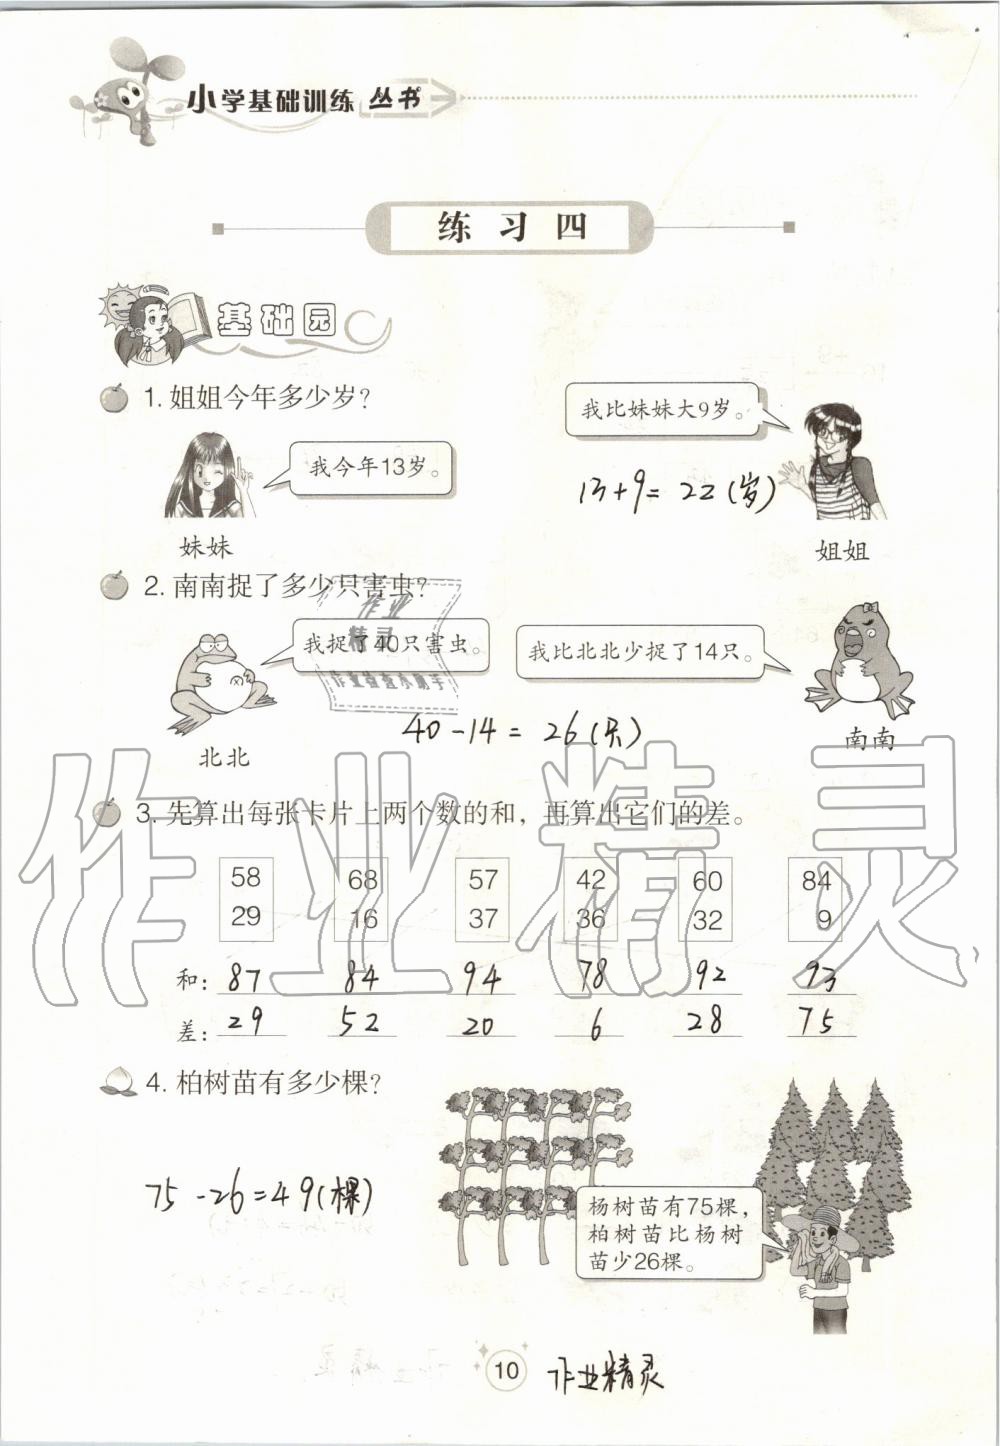 小学基础训练丛书
练习四
基础园
1. 姐姐今年多少岁?
我比妹妹大9岁。
我今年13岁。
13+9=22(岁)
妹妹
姐姐
2. 南南捉了多少只害虫?
我捉了40只害虫。
我比北北少捉了14只。
作业
精灵
作业检查小助手
40-14=26(只)
北北
南南
作业精灵
3. 先算出每张卡片上两个数的和，再算出它们的差。
58 68 57 42 60 84
29 16 37 36 32 9
和: 87 84 94 78 92 93
差: 29 52 20 6 28 75
4. 柏树苗有多少棵?
75-26=49(棵)
杨树苗有75棵，
柏树苗比杨树
苗少26棵。
10
作业精灵